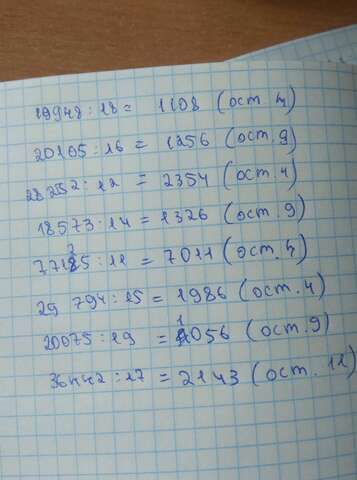 19948 : 18 = 1108 (ост. 4)
20105 : 16 = 1256 (ост. 9)
28252 : 12 = 2354 (ост. 4)
18573 : 14 = 1326 (ост. 9)
77125 : 11 = 7011 (ост. 4)
29 794 : 15 = 1986 (ост. 4)
20075 : 19 = 1056 (ост. 9)
36442 : 17 = 2143 (ост. 11)